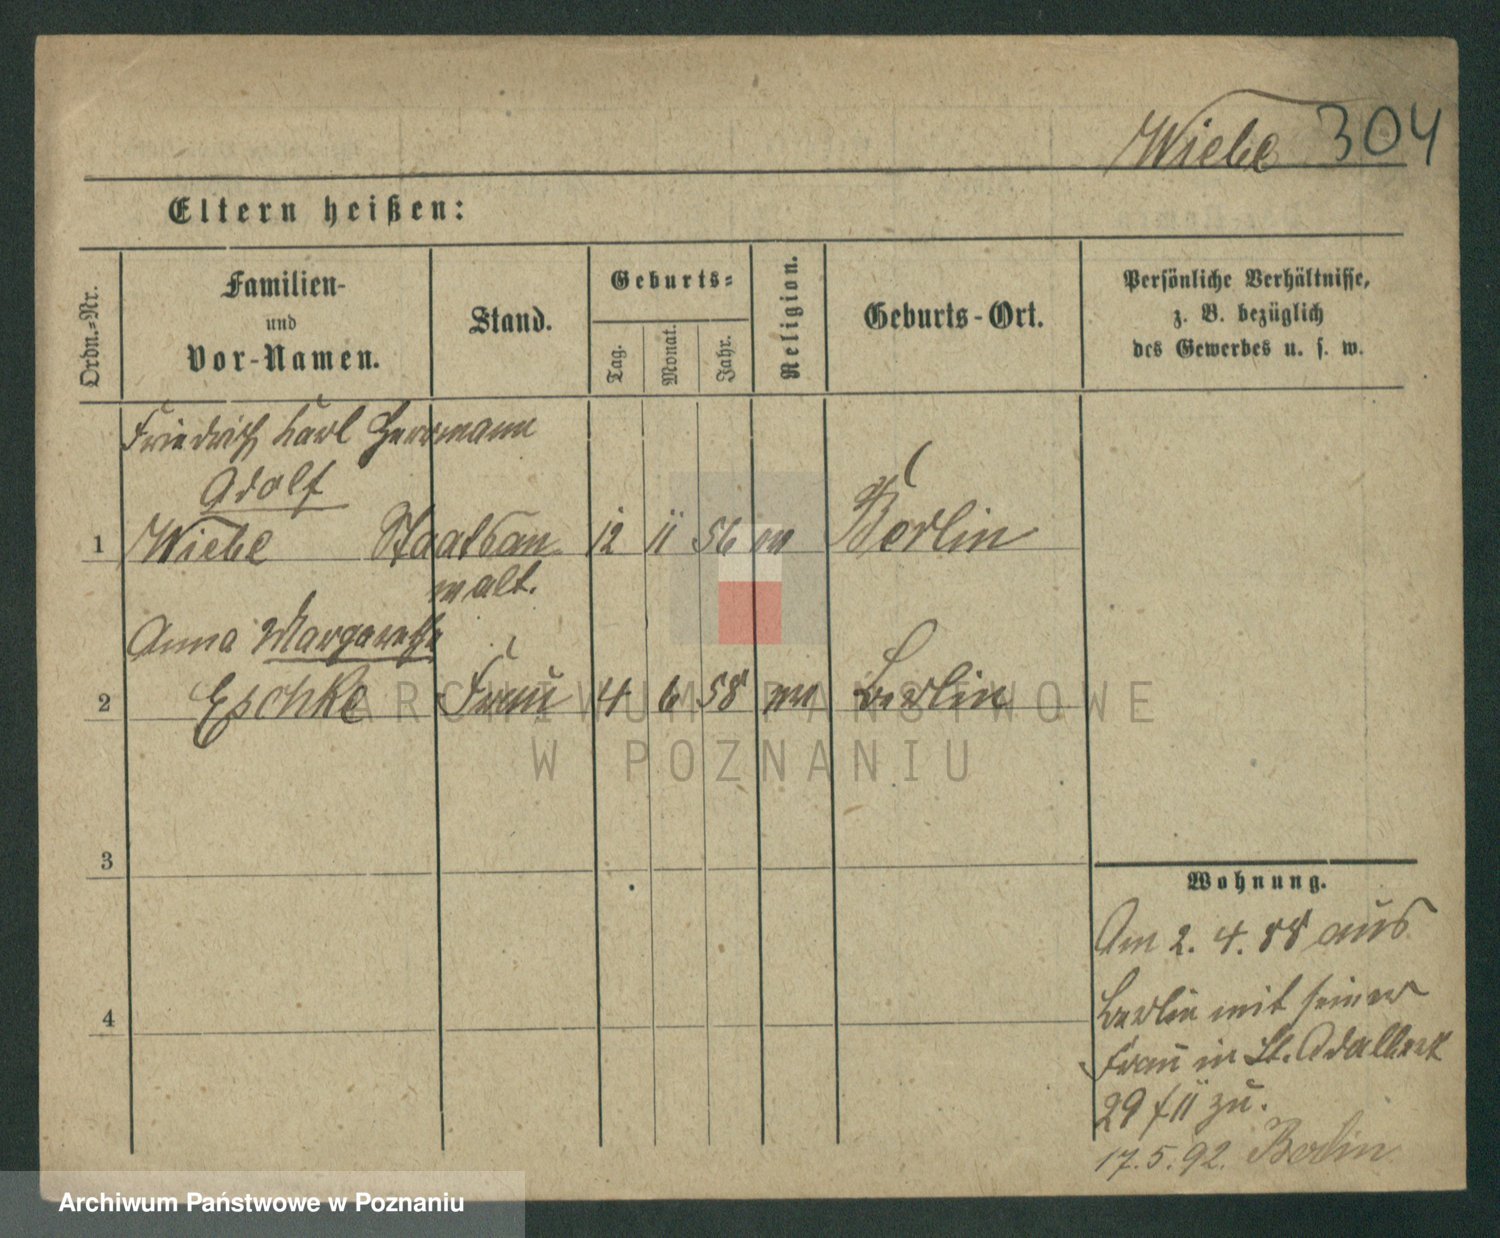 Wiebe 304
Eltern heißen:
Ordn.-Nr.
Familien-
und
Vor-Namen.
Stand.
Geburts-
Tag.
Monat.
Jahr.
Religion.
Geburts-Ort.
Persönliche Verhältnisse,
z. B. bezüglich
des Gewerbes u. s. w.
Friedrich Karl Herrmann
Adolf
1 Wiebe Staatsan 12 11 56 Berlin
walt.
Anna Margarethe
2 Eschke Frau 4 6 58 Berlin
3
4
Wohnung.
Am 2. 4. 88 aus
Berlin mit seiner
Frau in St. Adalbert
29 zu.
17. 5. 92. Berlin
ARCHIWUM PAŃSTWOWE
W POZNANIU
Archiwum Państwowe w Poznaniu